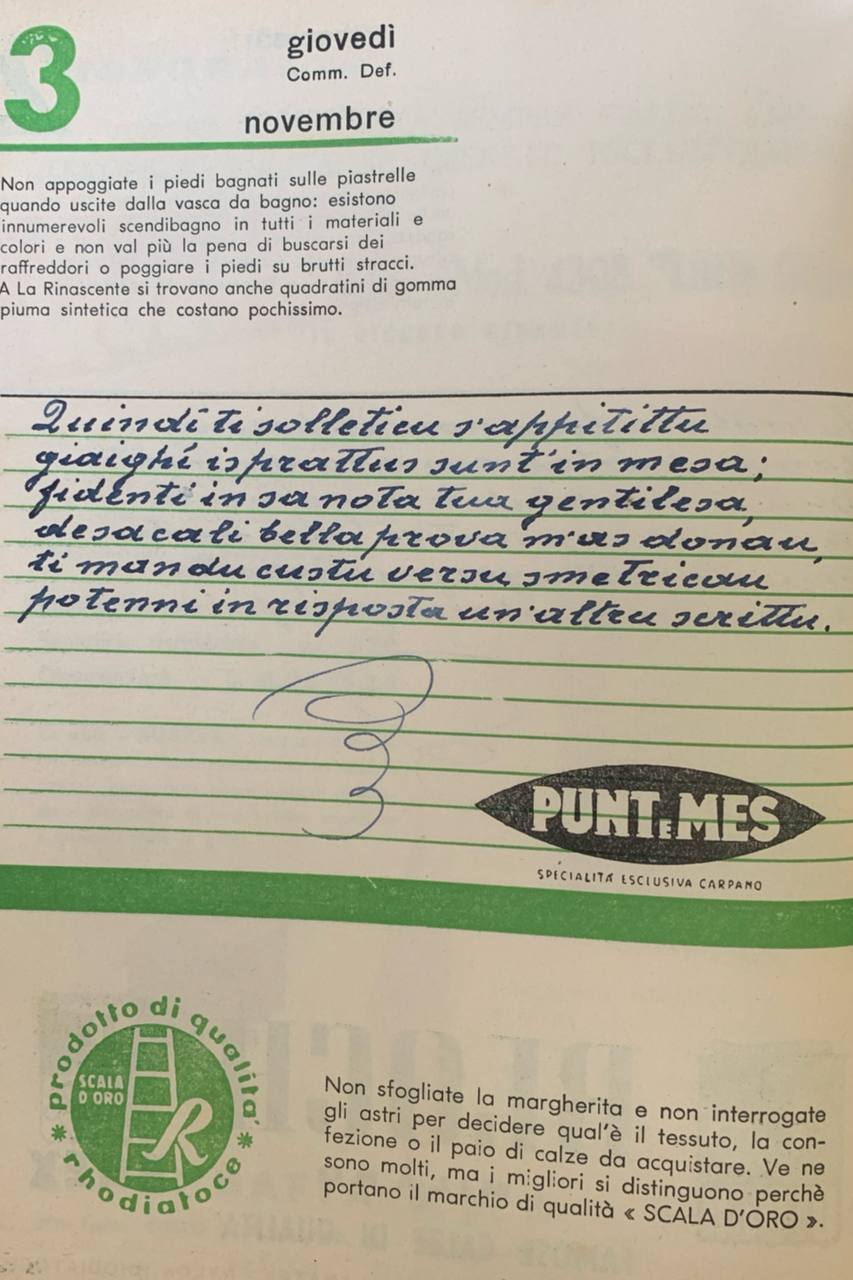 3
giovedì
Comm. Def.
novembre
Non appoggiate i piedi bagnati sulle piastrelle
quando uscite dalla vasca da bagno: esistono
innumerevoli scendibagno in tutti i materiali e
colori e non val più la pena di buscarsi dei
raffreddori o poggiare i piedi su brutti stracci.
A La Rinascente si trovano anche quadratini di gomma
piuma sintetica che costano pochissimo.
Quindi ti solleticu s'appitittu
giaighí is prattus sunt'in mesa;
fidenti in sa nota tua gentilesa,
de sa cali bella prova m'as donau,
ti mandu custu versu, smetricau
potenni in risposta un'altru scrittu.
PUNT E MES
SPECIALITÀ ESCLUSIVA CARPANO
prodotto di qualità
SCALA
D'ORO
R
* rhodiatoce *
Non sfogliate la margherita e non interrogate
gli astri per decidere qual'è il tessuto, la con-
fezione o il paio di calze da acquistare. Ve ne
sono molti, ma i migliori si distinguono perchè
portano il marchio di qualità « SCALA D'ORO ».